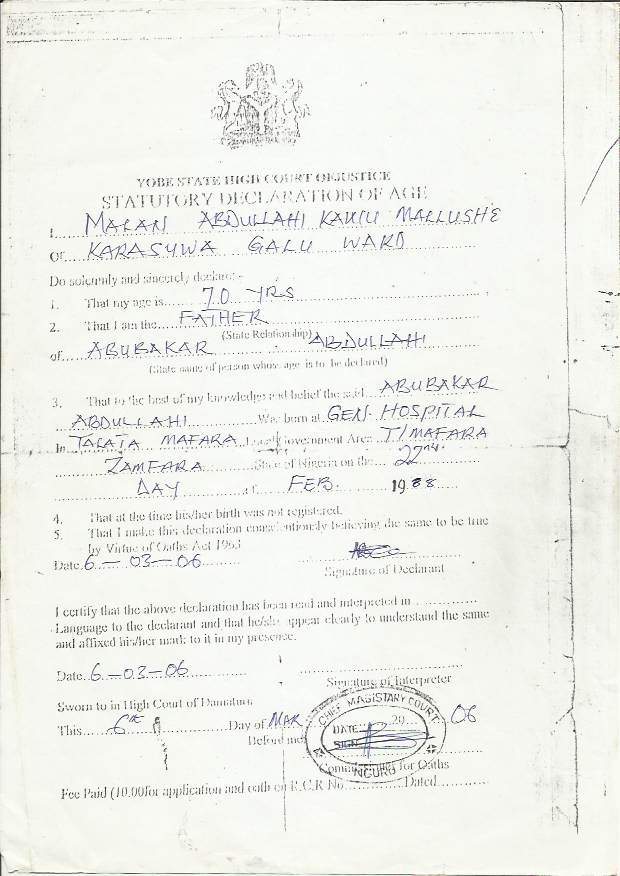 YOBE STATE HIGH COURT OF JUSTICE
STATUTORY DECLARATION OF AGE
I MALAN ABDULLAHI KANIU MALLUSHE
Of KARASUWA GALU WARD
Do solemnly and sincerely declare:-
1. That my age is 70 YRS
2. That I am the FATHER
(State Relationship)
of ABUBAKAR ABDULLAHI
(State name of person whose age is to be declared)
3. That to the best of my knowledge and belief the said ABUBAKAR
ABDULLAHI Was born at GEN HOSPITAL
In TALATA MAFARA Local Government Area T/MAFARA
ZAMFARA State of Nigeria on the 22nd
DAY of FEB. 1988
4. That at the time his/her birth was not registered.
5. That I make this declaration conscientiously believing the same to be true
by Virtue of Oaths Act 1963
Date 6-03-06
Signature of Declarant
I certify that the above declaration has been read and interpreted in
Language to the declarant and that he/she appear clearly to understand the same
and affixed his/her mark to it in my presence.
Date 6-03-06
Signature of Interpreter
Sworn to in High Court of Damaturu
This 6TH Day of MAR 20 06
Before me
CHIEF MAGISTARY COURT
DATE:
SIGN:
NGURU
Commissioner for Oaths
Fee Paid (10.00for application and oath on R.C.R No Dated